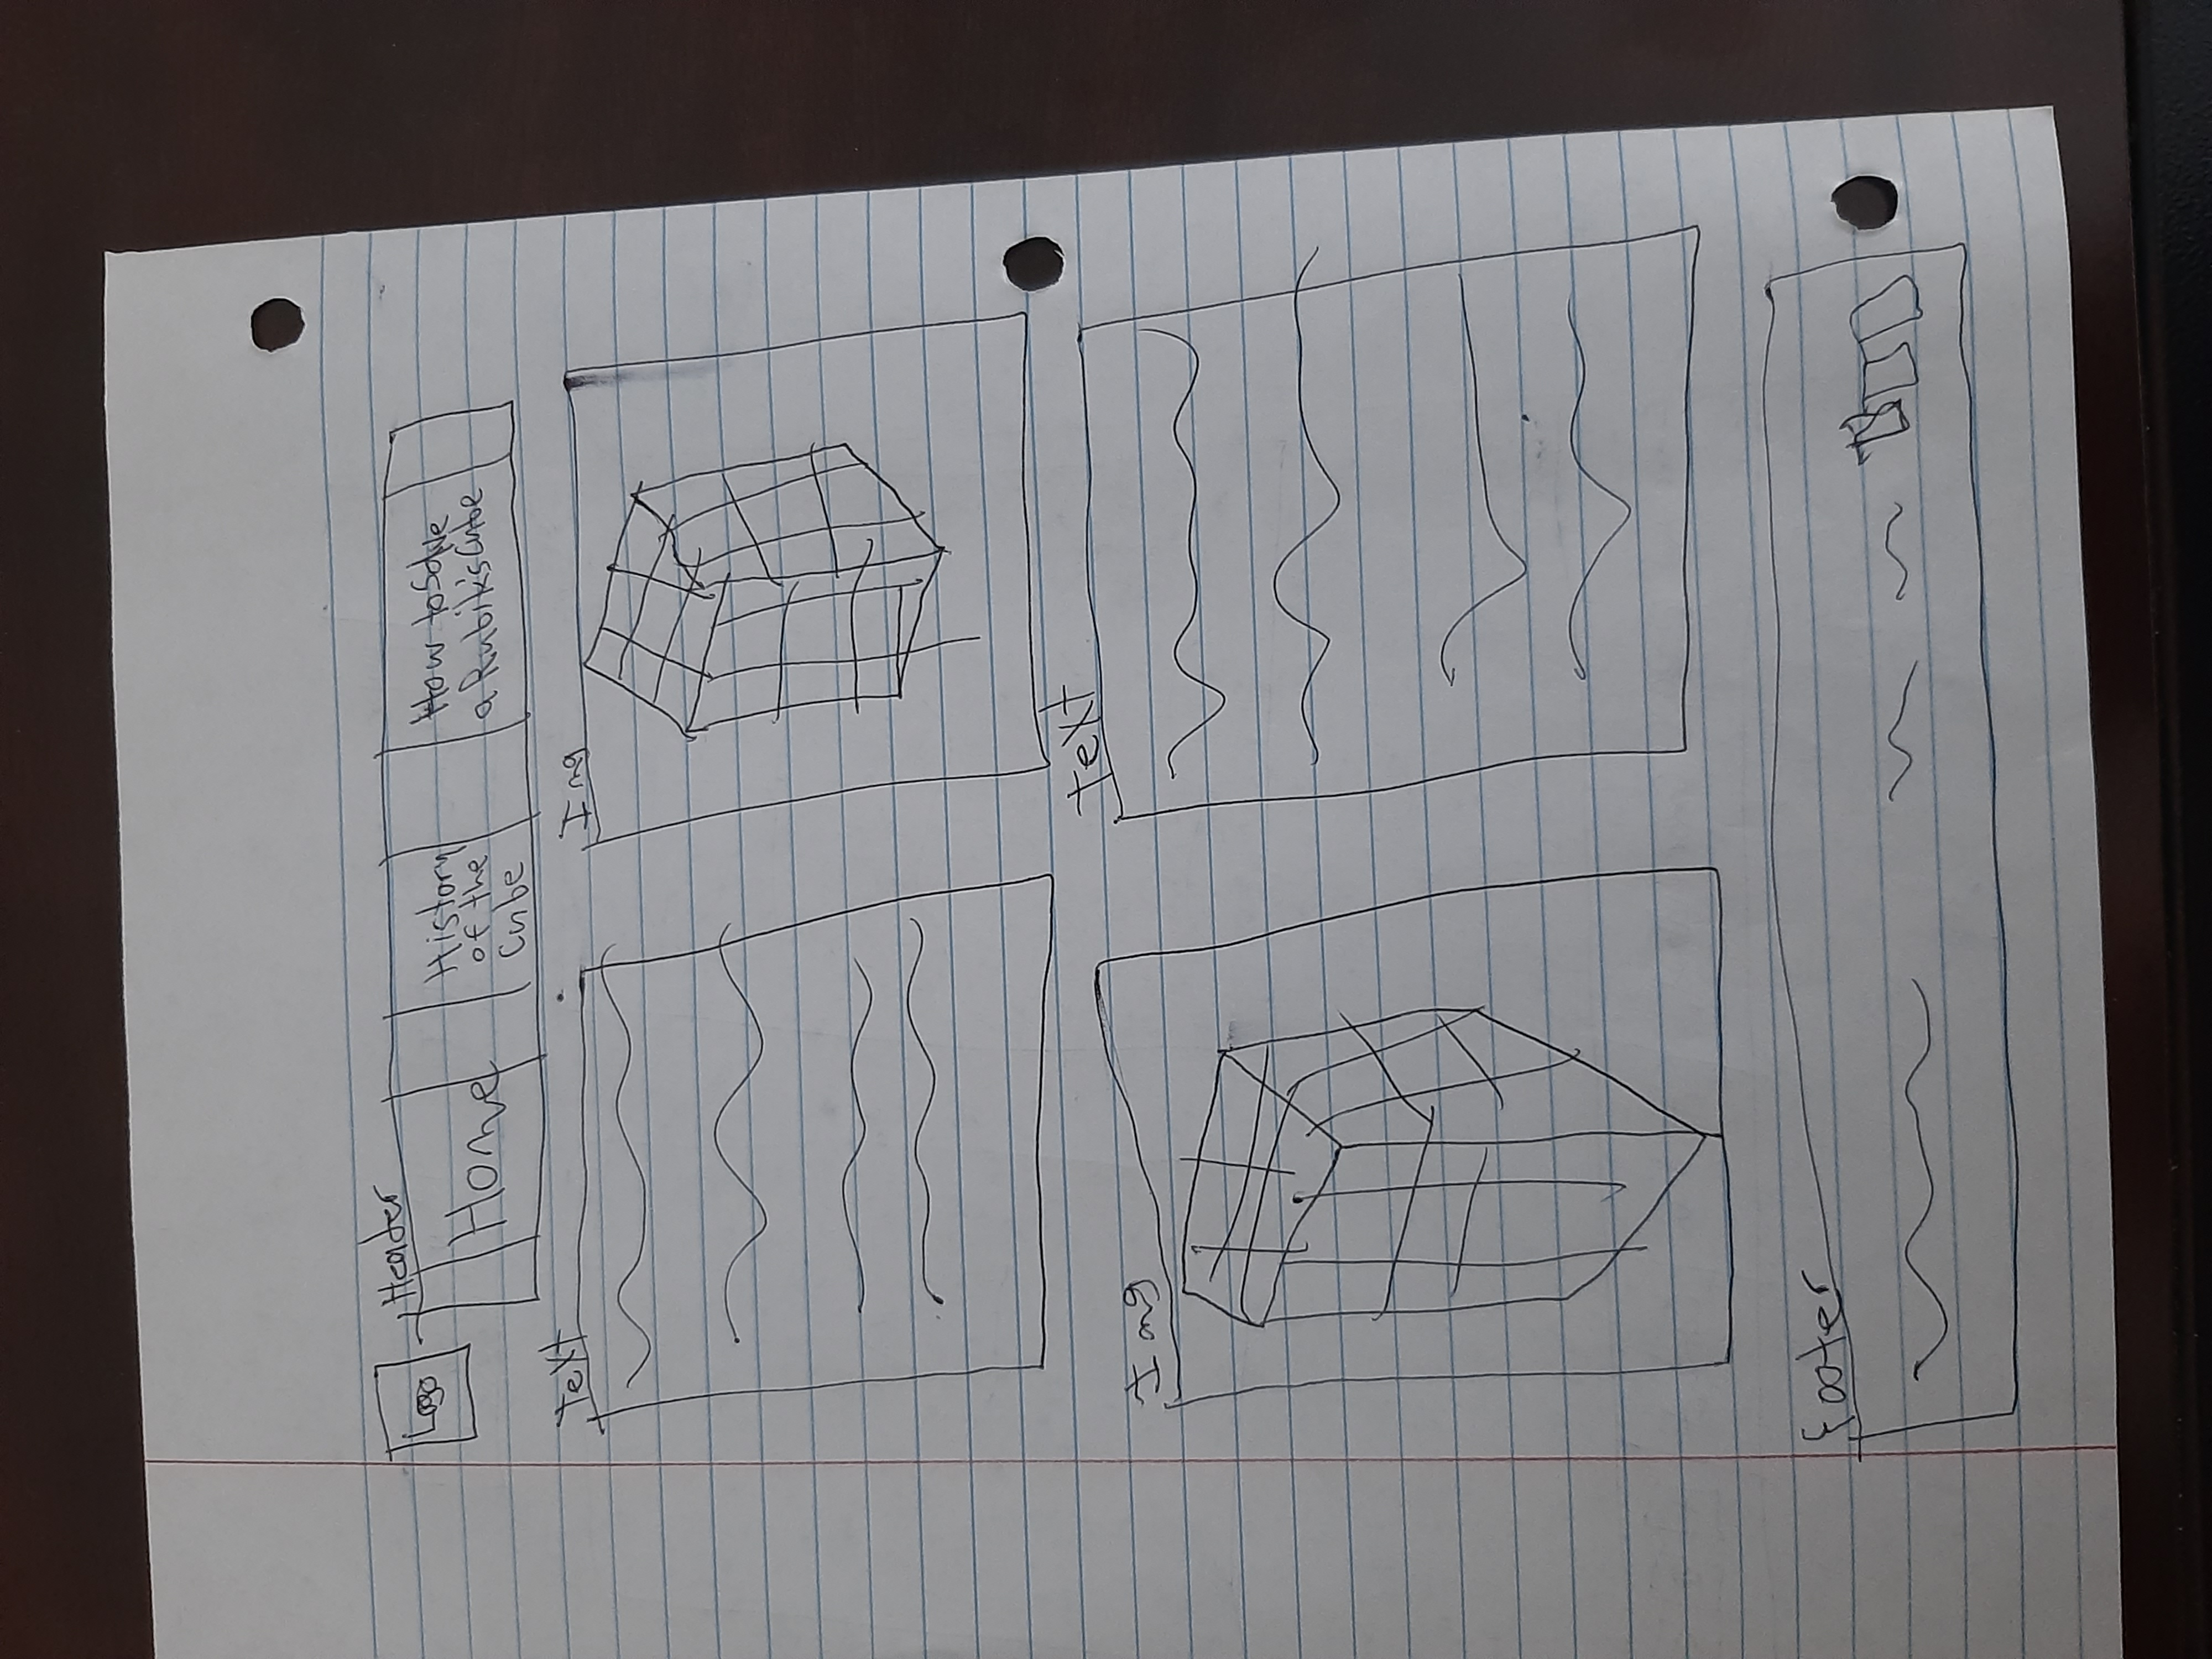 Logo
Header
Home
History
of the
Cube
How to Solve
a Rubik's Cube
Text
Img
Img
Text
footer